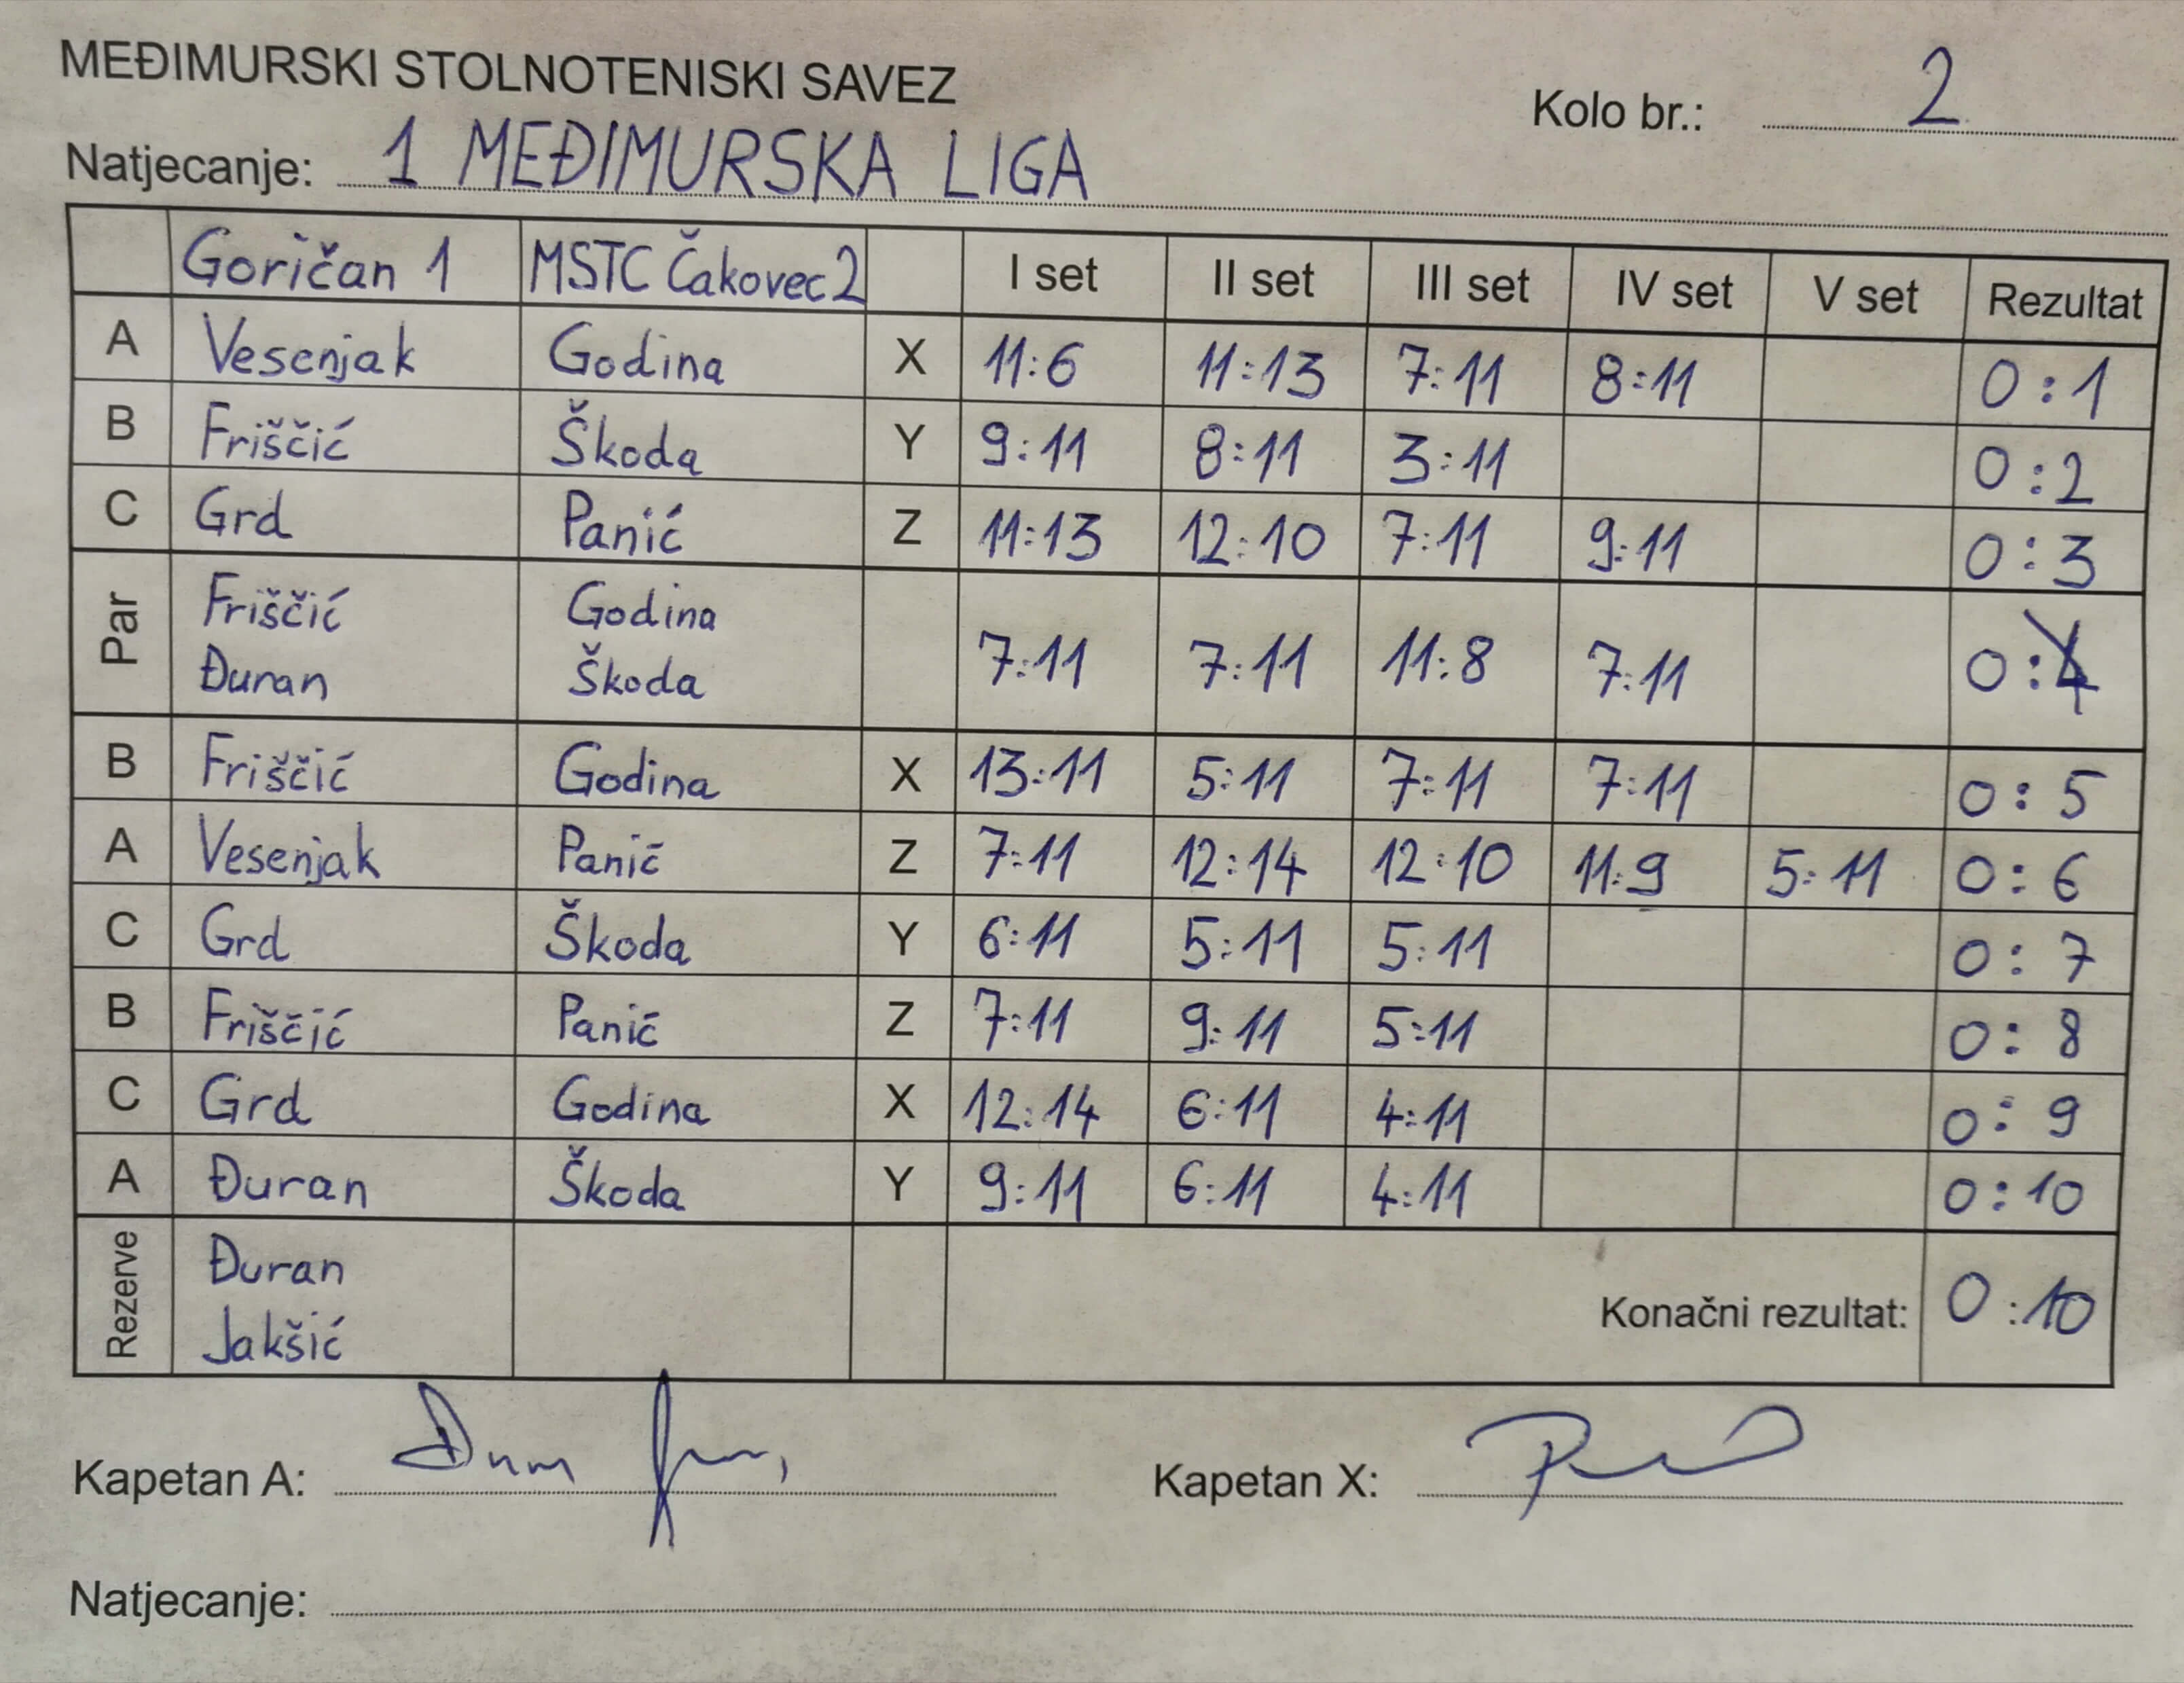 MEĐIMURSKI STOLNOTENISKI SAVEZ
Kolo br.: 2
Natjecanje: 1 MEĐIMURSKA LIGA
Goričan 1 MSTC Čakovec 2 I set II set III set IV set V set Rezultat
A Vesenjak Godina X 11:6 11:13 7:11 8:11 0:1
B Friščić Škoda Y 9:11 8:11 3:11 0:2
C Grd Panić Z 11:13 12:10 7:11 9:11 0:3
Par Friščić Godina
Đuran Škoda 7:11 7:11 11:8 7:11 0:4
B Friščić Godina X 13:11 5:11 7:11 7:11 0:5
A Vesenjak Panić Z 7:11 12:14 12:10 11:9 5:11 0:6
C Grd Škoda Y 6:11 5:11 5:11 0:7
B Friščić Panić Z 7:11 9:11 5:11 0:8
C Grd Godina X 12:14 6:11 4:11 0:9
A Đuran Škoda Y 9:11 6:11 4:11 0:10
Rezerve Đuran
Jakšić
Konačni rezultat: 0:10
Kapetan A: Kapetan X:
Natjecanje: